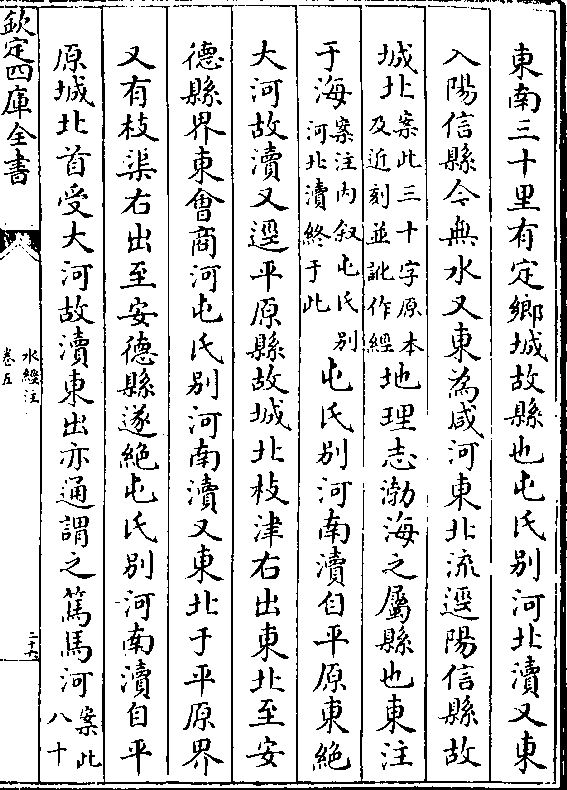 東南三十里有定鄉城故縣也屯氏別河北瀆又東
入陽信縣今無水又東為咸河東北流逕陽信縣故
城北案此三十字原本及近刻並訛作經地理志渤海之屬縣也東注
于海案注内叙屯氏別河北瀆終于此屯氏別河南瀆自平原東絶
大河故瀆又逕平原縣故城北枝津右出東北至安
德縣界東會商河屯氏別河南瀆又東北于平原界
又有枝渠右出至安德縣遂絶屯氏別河南瀆自平
原城北首受大河故瀆東出亦通謂之篤馬河案此八十
欽定四庫全書
水經注
卷五
二十六